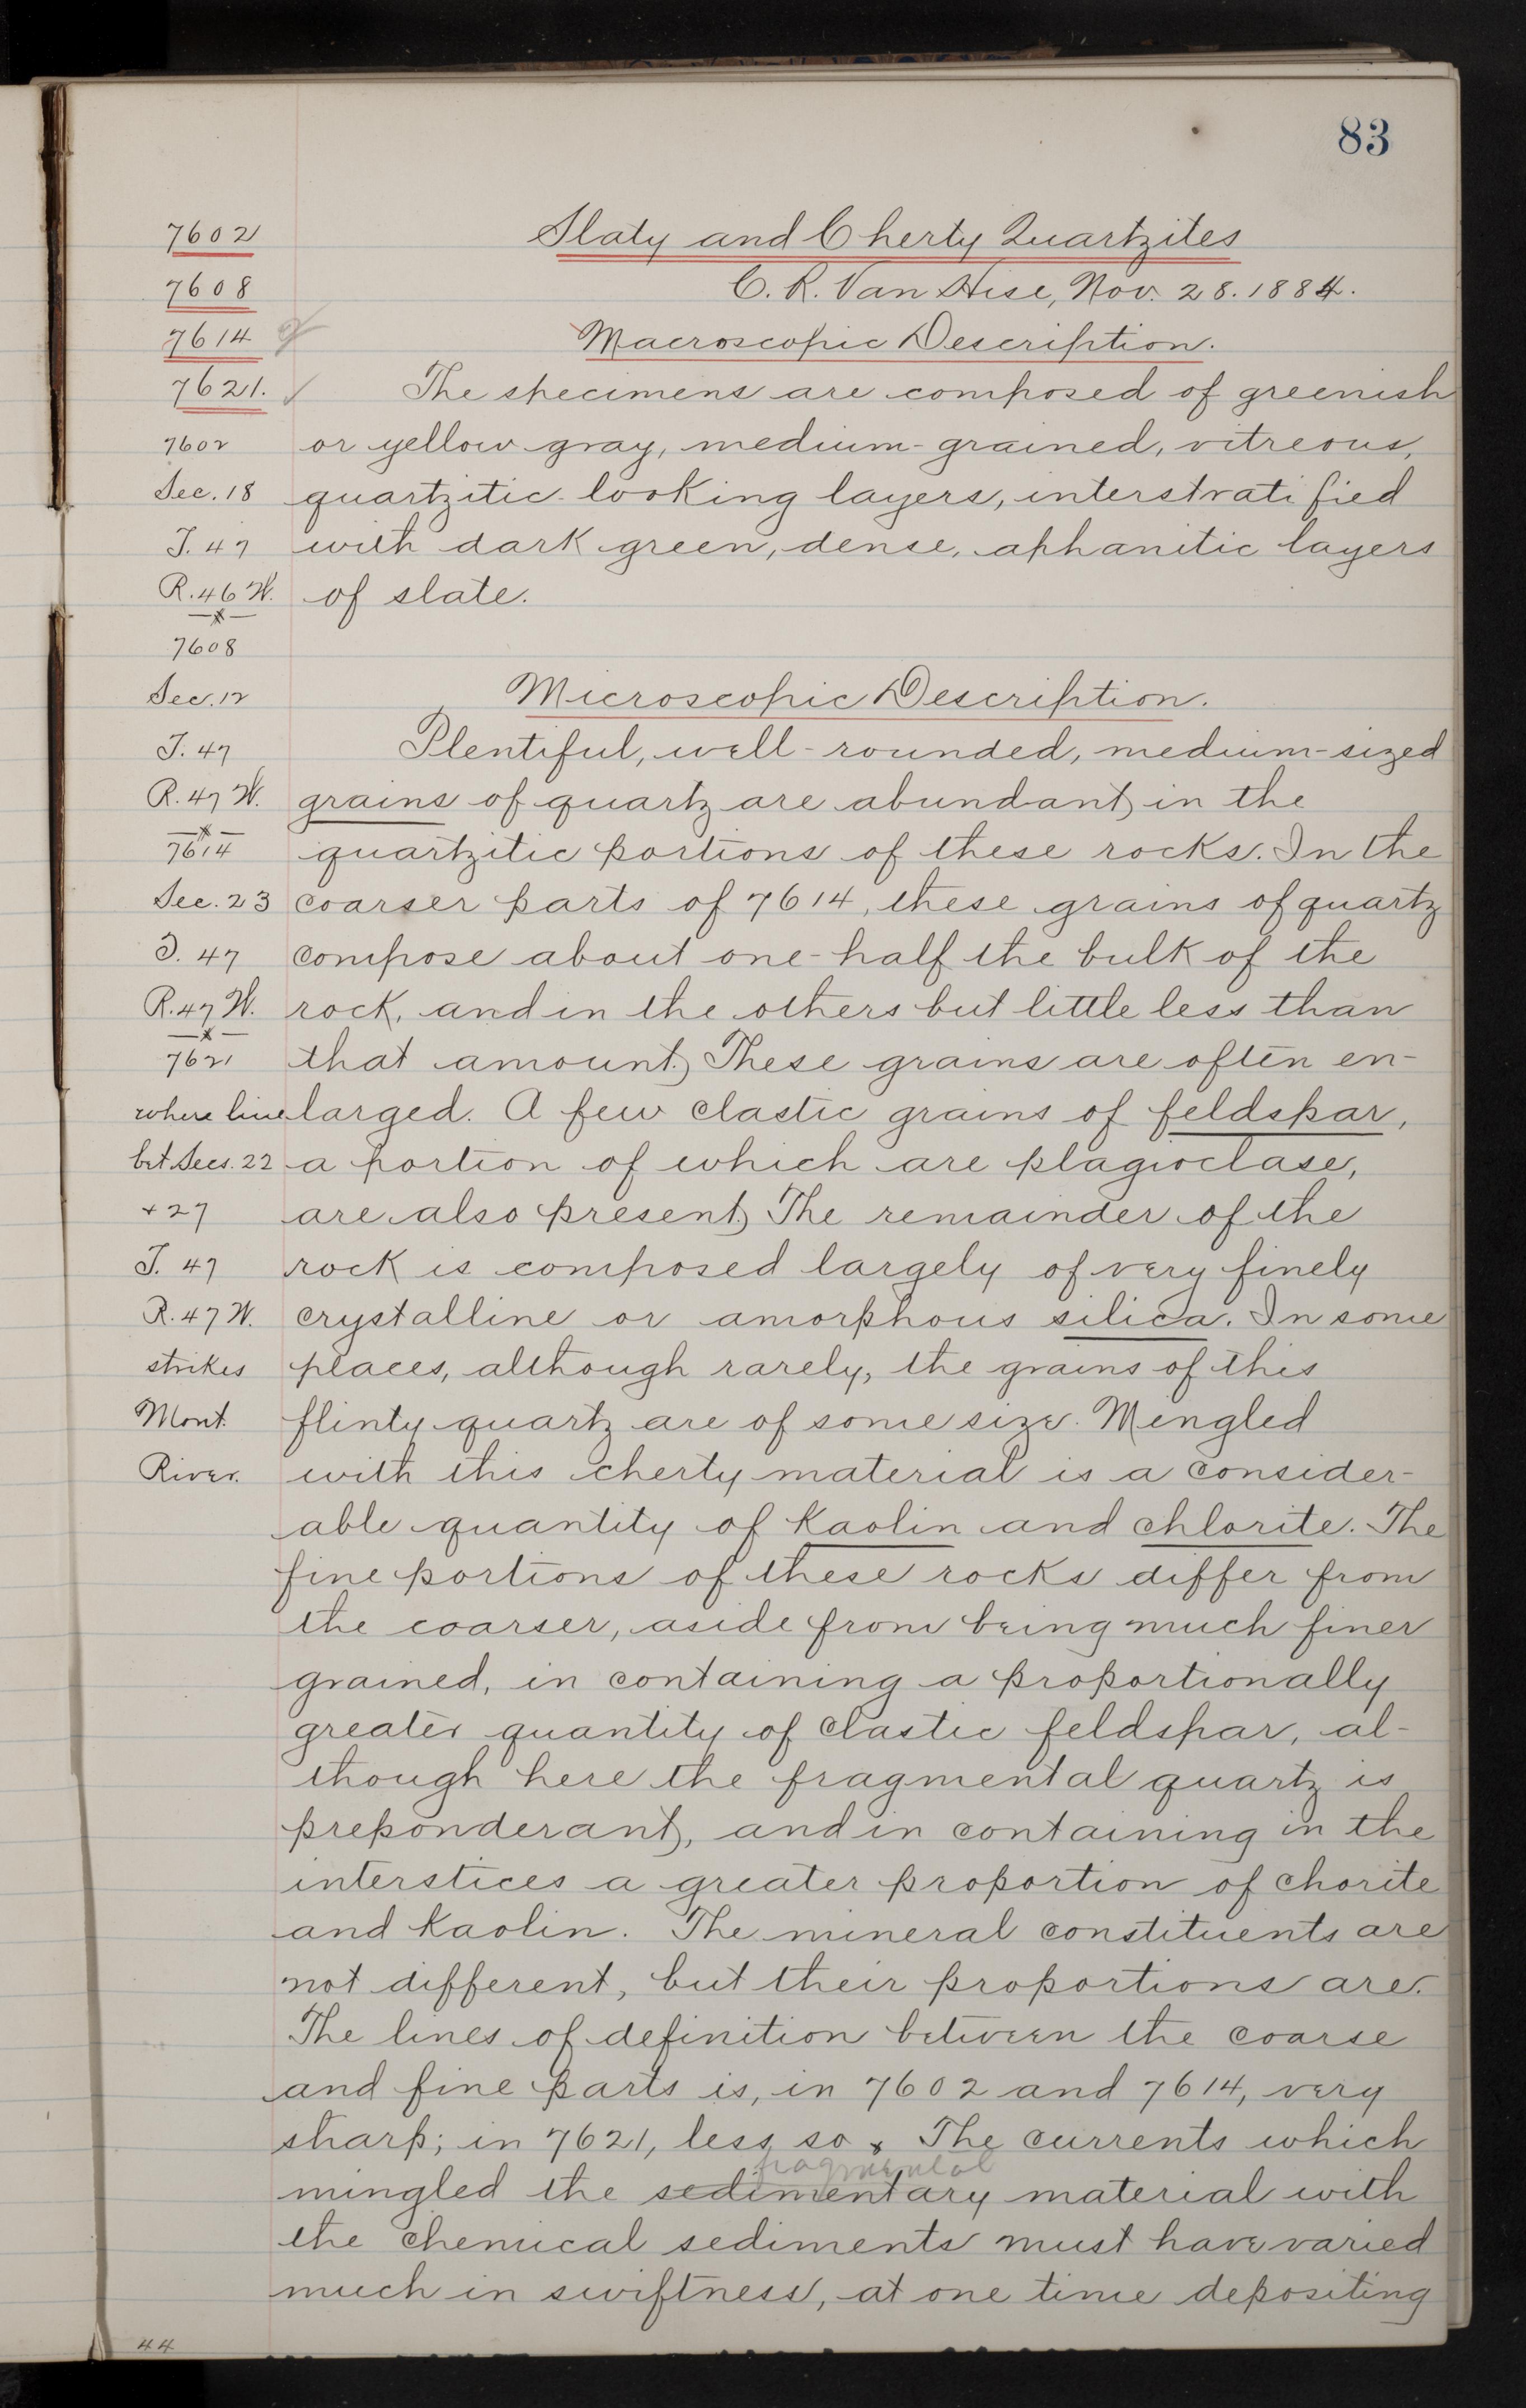 83
7602
Slaty and Cherty Quartzites
7608
C. R. Van Hise, Nov. 28. 1884.
7614
Macroscopic Description.
7621.
The specimens are composed of greenish
7602
or yellow gray, medium-grained, vitreous,
Sec. 18
quartzitic-looking layers, interstratified
T. 47
with dark green, dense, aphanitic layers
R. 46 W.
of slate.
7608
Sec. 12
Microscopic Description.
T. 47
Plentiful, well-rounded, medium-sized
R. 47 W.
grains of quartz are abundant in the
7614
quartzitic portions of these rocks. In the
Sec. 23
coarser parts of 7614, these grains of quartz
T. 47
compose about one-half the bulk of the
R. 47 W.
rock, and in the others but little less than
7621
that amount. These grains are often en-
where line
larged. A few clastic grains of feldspar,
bet. Secs. 22
a portion of which are plagioclase,
+ 27
are also present. The remainder of the
T. 47
rock is composed largely of very finely
R. 47 W.
crystalline or amorphous silica. In some
strikes
places, although rarely, the grains of this
Mont.
flinty quartz are of some size. Mingled
River.
with this cherty material is a consider-
able quantity of Kaolin and chlorite. The
fine portions of these rocks differ from
the coarser, aside from being much finer
grained, in containing a proportionally
greater quantity of clastic feldspar, al-
though here the fragmental quartz is
preponderant, and in containing in the
interstices a greater proportion of chorite
and Kaolin. The mineral constituents are
not different, but their proportions are.
The lines of definition between the coarse
and fine parts is, in 7602 and 7614, very
sharp; in 7621, less so. The currents which
fragmental
mingled the sedimentary material with
the chemical sediments must have varied
much in swiftness, at one time depositing
44